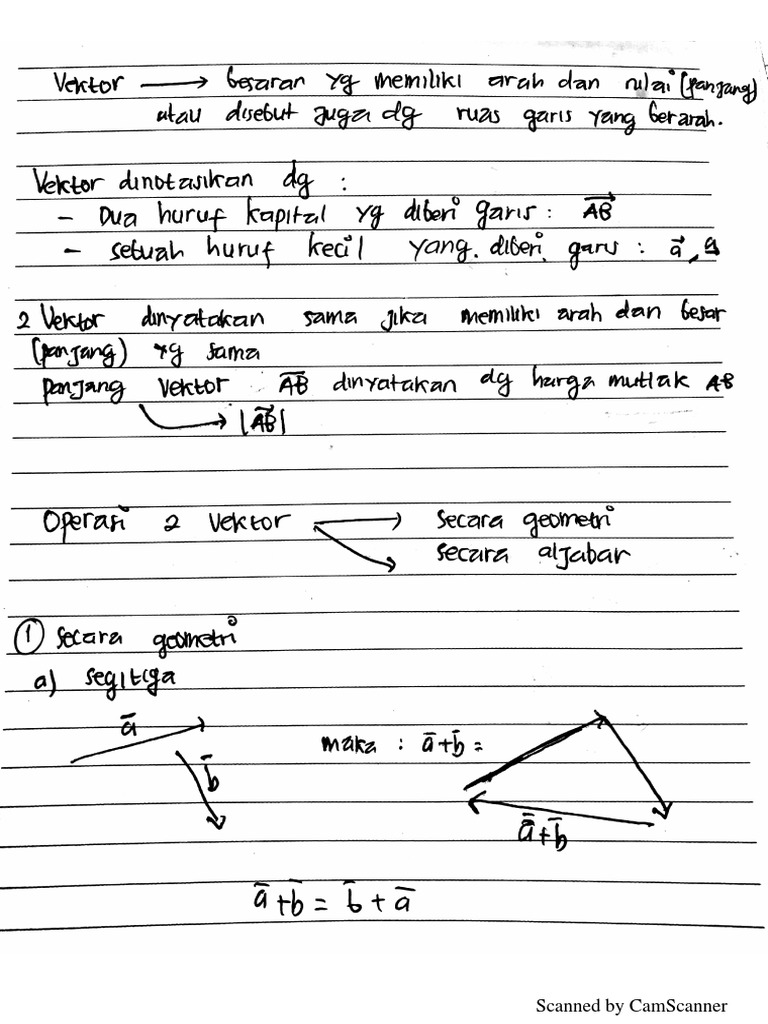 Vektor → besaran yg memiliki arah dan nilai (panjang)
atau disebut juga dg ruas garis yang berarah.
Vektor dinotasikan dg :
- Dua huruf kapital yg diberi garis : A͞B⃗
- sebuah huruf kecil yang. diberi garis : a⃗,
2 Vektor dinyatakan sama jika memiliki arah dan besar
(panjang) yg sama
panjang Vektor A͞B͞ dinyatakan dg harga mutlak AB
→ |A͞B⃗|
Operasi 2 Vektor → secara geometri
→ secara aljabar
① secara geometri
a) segitiga
ā
b̄
maka : ā + b̄ =
ā + b̄
ā + b̄ = b̄ + ā
Scanned by CamScanner